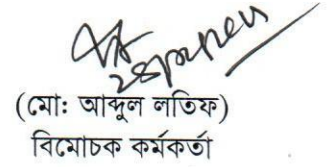 (মো: আব্দুল লতিফ)
বিমোচক কর্মকর্তা